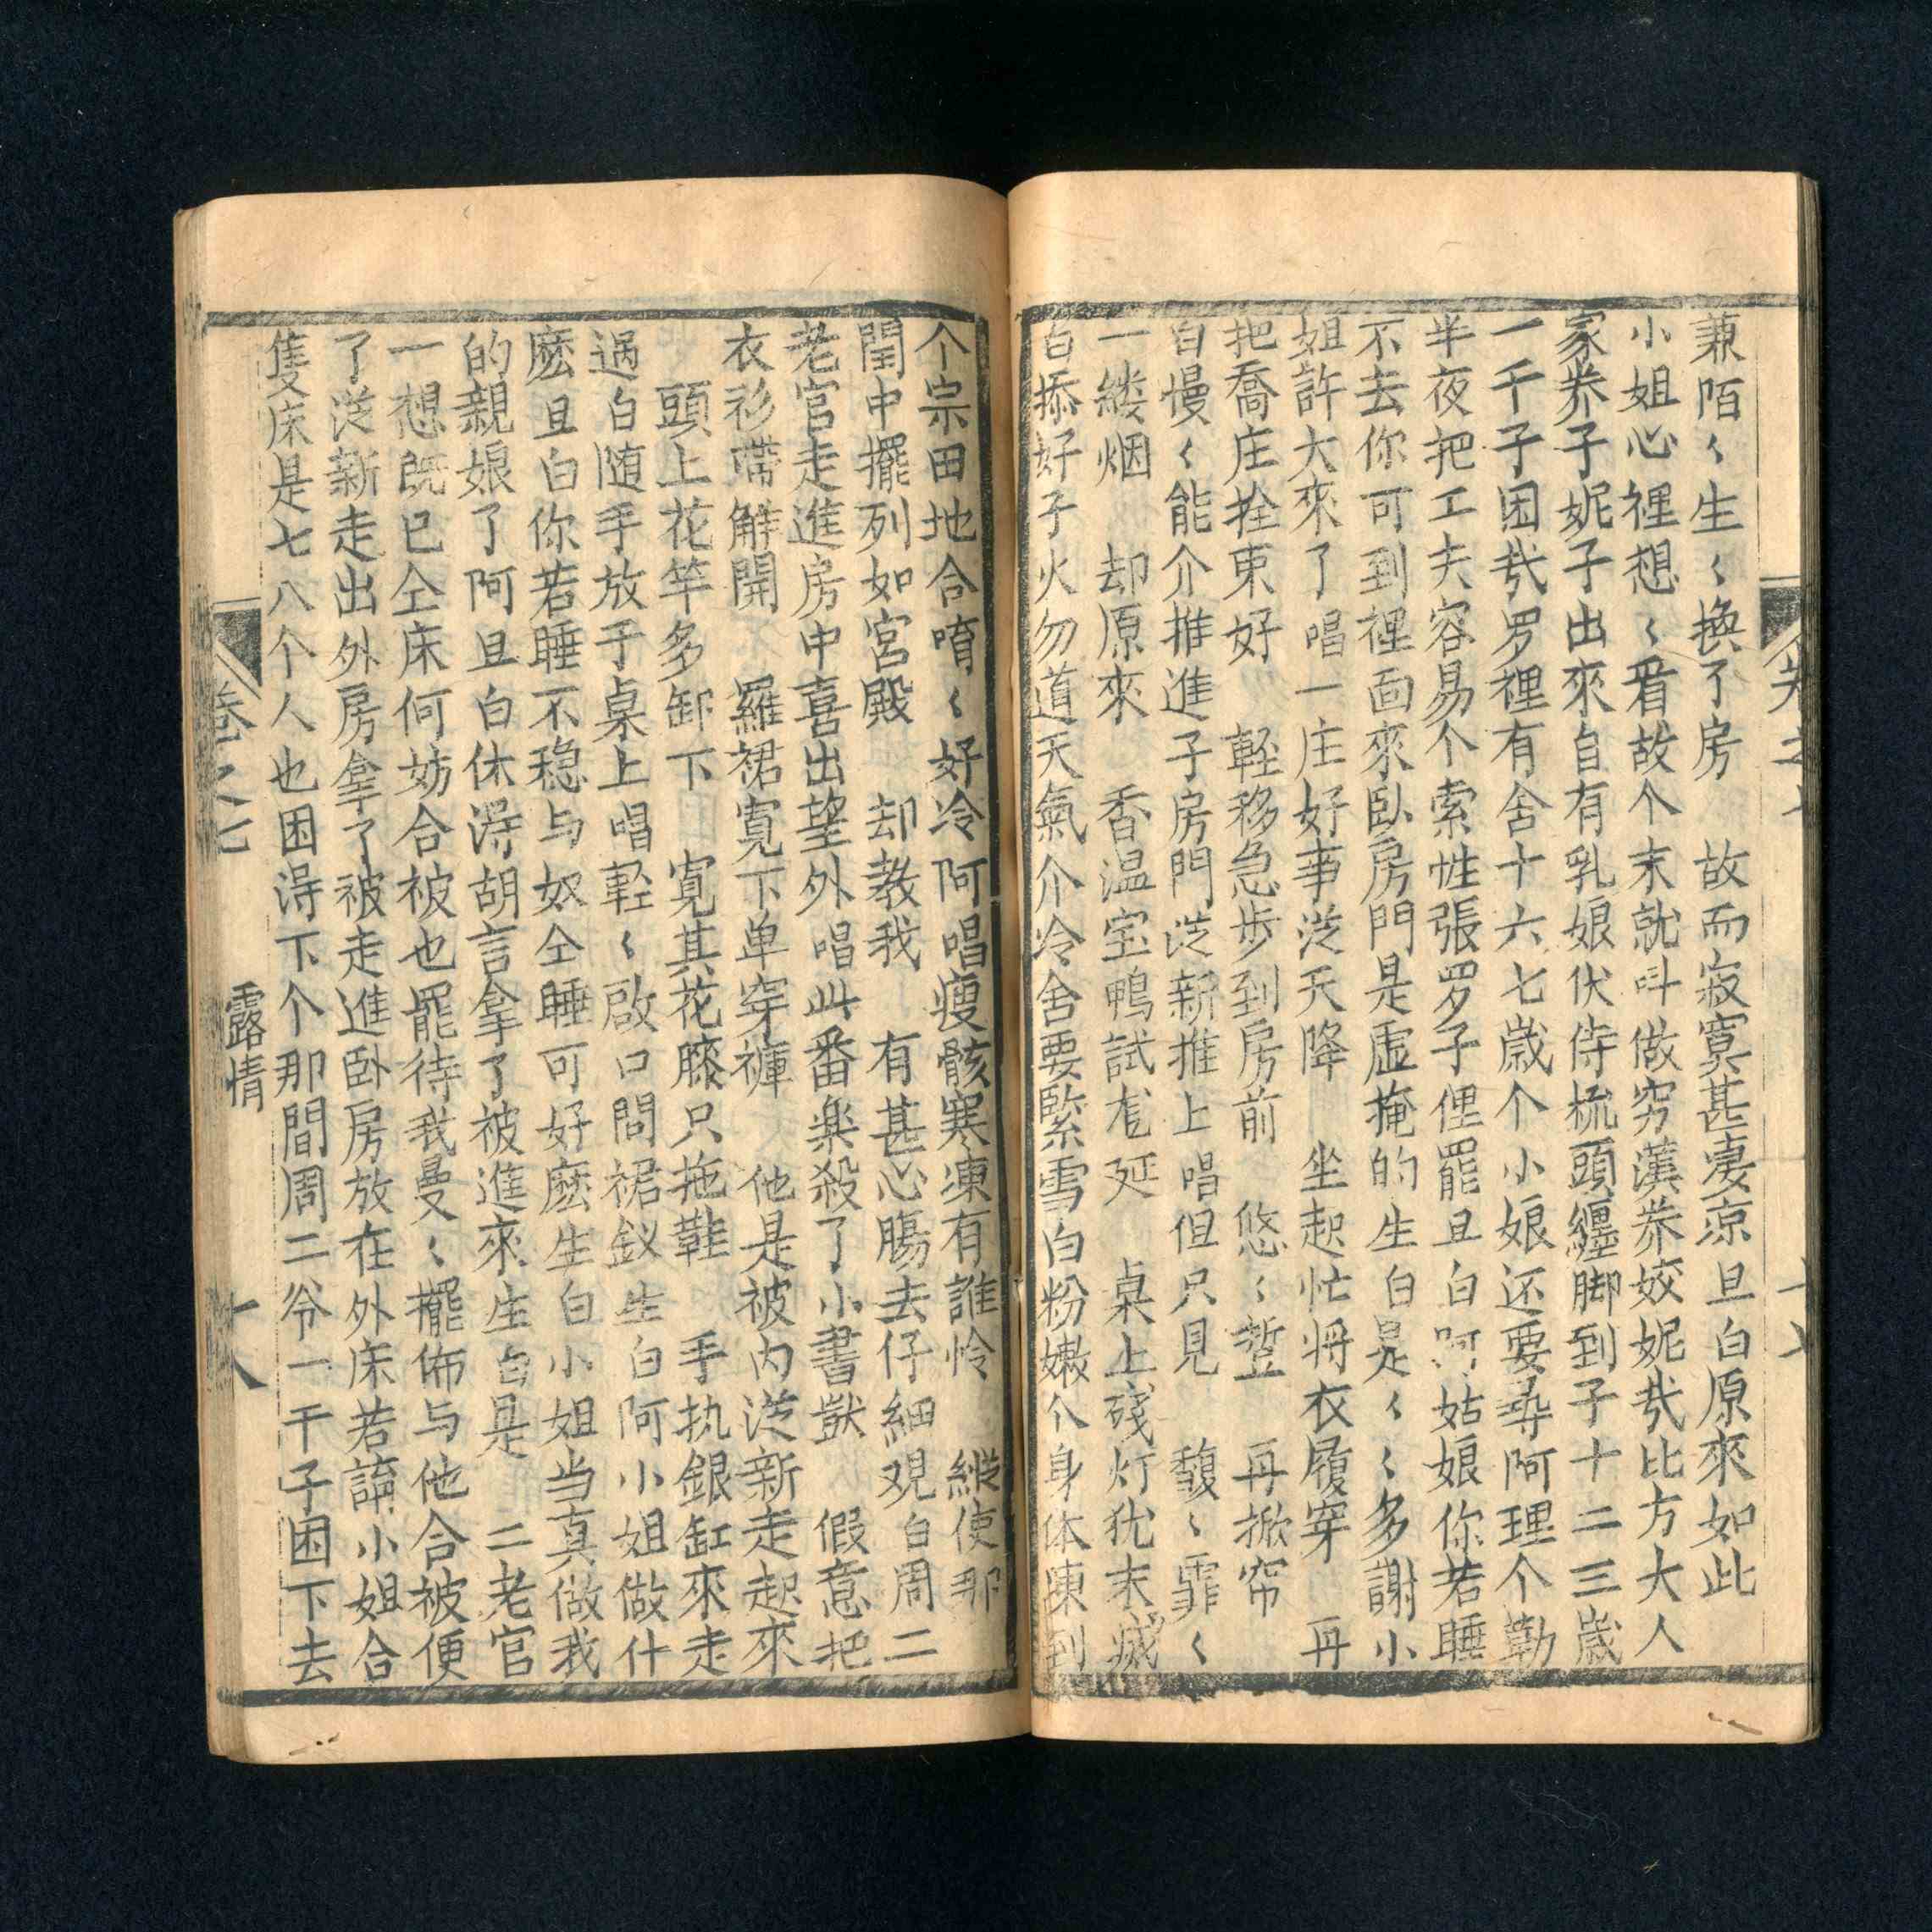 兼陌〻生〻換了房　故而寂寞甚凄凉旦白原來如此
小姐心裡想〻看故个末就呌做穷漢养姣妮㦲比方大人
家养子妮子出來自有乳娘伏侍梳頭纏脚到子十二三歲
一千子困㦲罗裡有舍十六七歲个小娘还要尋阿理个勤
半夜把工夫容易个索性張罗子俚罷旦白阿姑娘你若睡
不去你可到裡面來卧房門是虛掩的生白是〻〻多謝小
姐許大來了唱一庄好事泛天降　坐起忙将衣履穿　再
把喬庄拴束好　輕移急步到房前　悠〻蹔　再掀帘
白慢〻能介推進子房門泛新推上唱但只見　馥〻霏〻
一缕烟　却原來　香温宝鴨試　延　桌上残灯犹末滅
白添好子火勿道天氣介冷舍要緊雪白粉嫩个身体凍到
卷之七
个宗田地合唷〻好冷阿唱瘦骸寒凍有誰怜　縱使那
閏中擺列如宮殿　却教我　有甚心腸去仔細观白周二
老官走進房中喜出望外唱此番楽殺了小書獃　假意把
衣衫帶解開　羅裙寛下单穿褲　他是被内泛新走起來
頭上花竿多卸下　寛其花膝只拖鞋　手执銀缸來走
過白随手放于桌上唱輕〻啟口問裙釵生白阿小姐做什
麽旦白你若睡不稳与奴仝睡可好麽生白小姐当真做我
的親娘了阿旦白休淂胡言拿了被進來生白是　二老官
一想既已仝床何妨合被也罷待我曼〻擺佈与他合被便
了泛新走出外房拿了被走進卧房放在外床若論小姐合
隻床是七八个人也困淂下个那間周二爷一干子困下去
卷之七　露情　十八